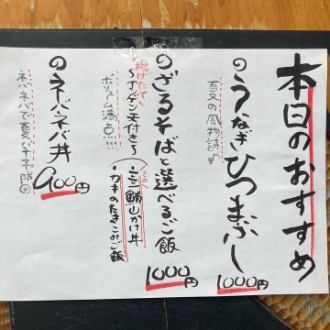 本日のおすすめ
のうなぎひつまぶし
夏の風物詩♪
1000円
のざるそばと選べるご飯
揚げたて
〜インゲン天付き〜
ボリューム満点!!!
ミニ鮪山かけ丼
カキのたきこみご飯
1000円
のネバネバ丼
ネバネバで夏バテ予防◎
900円